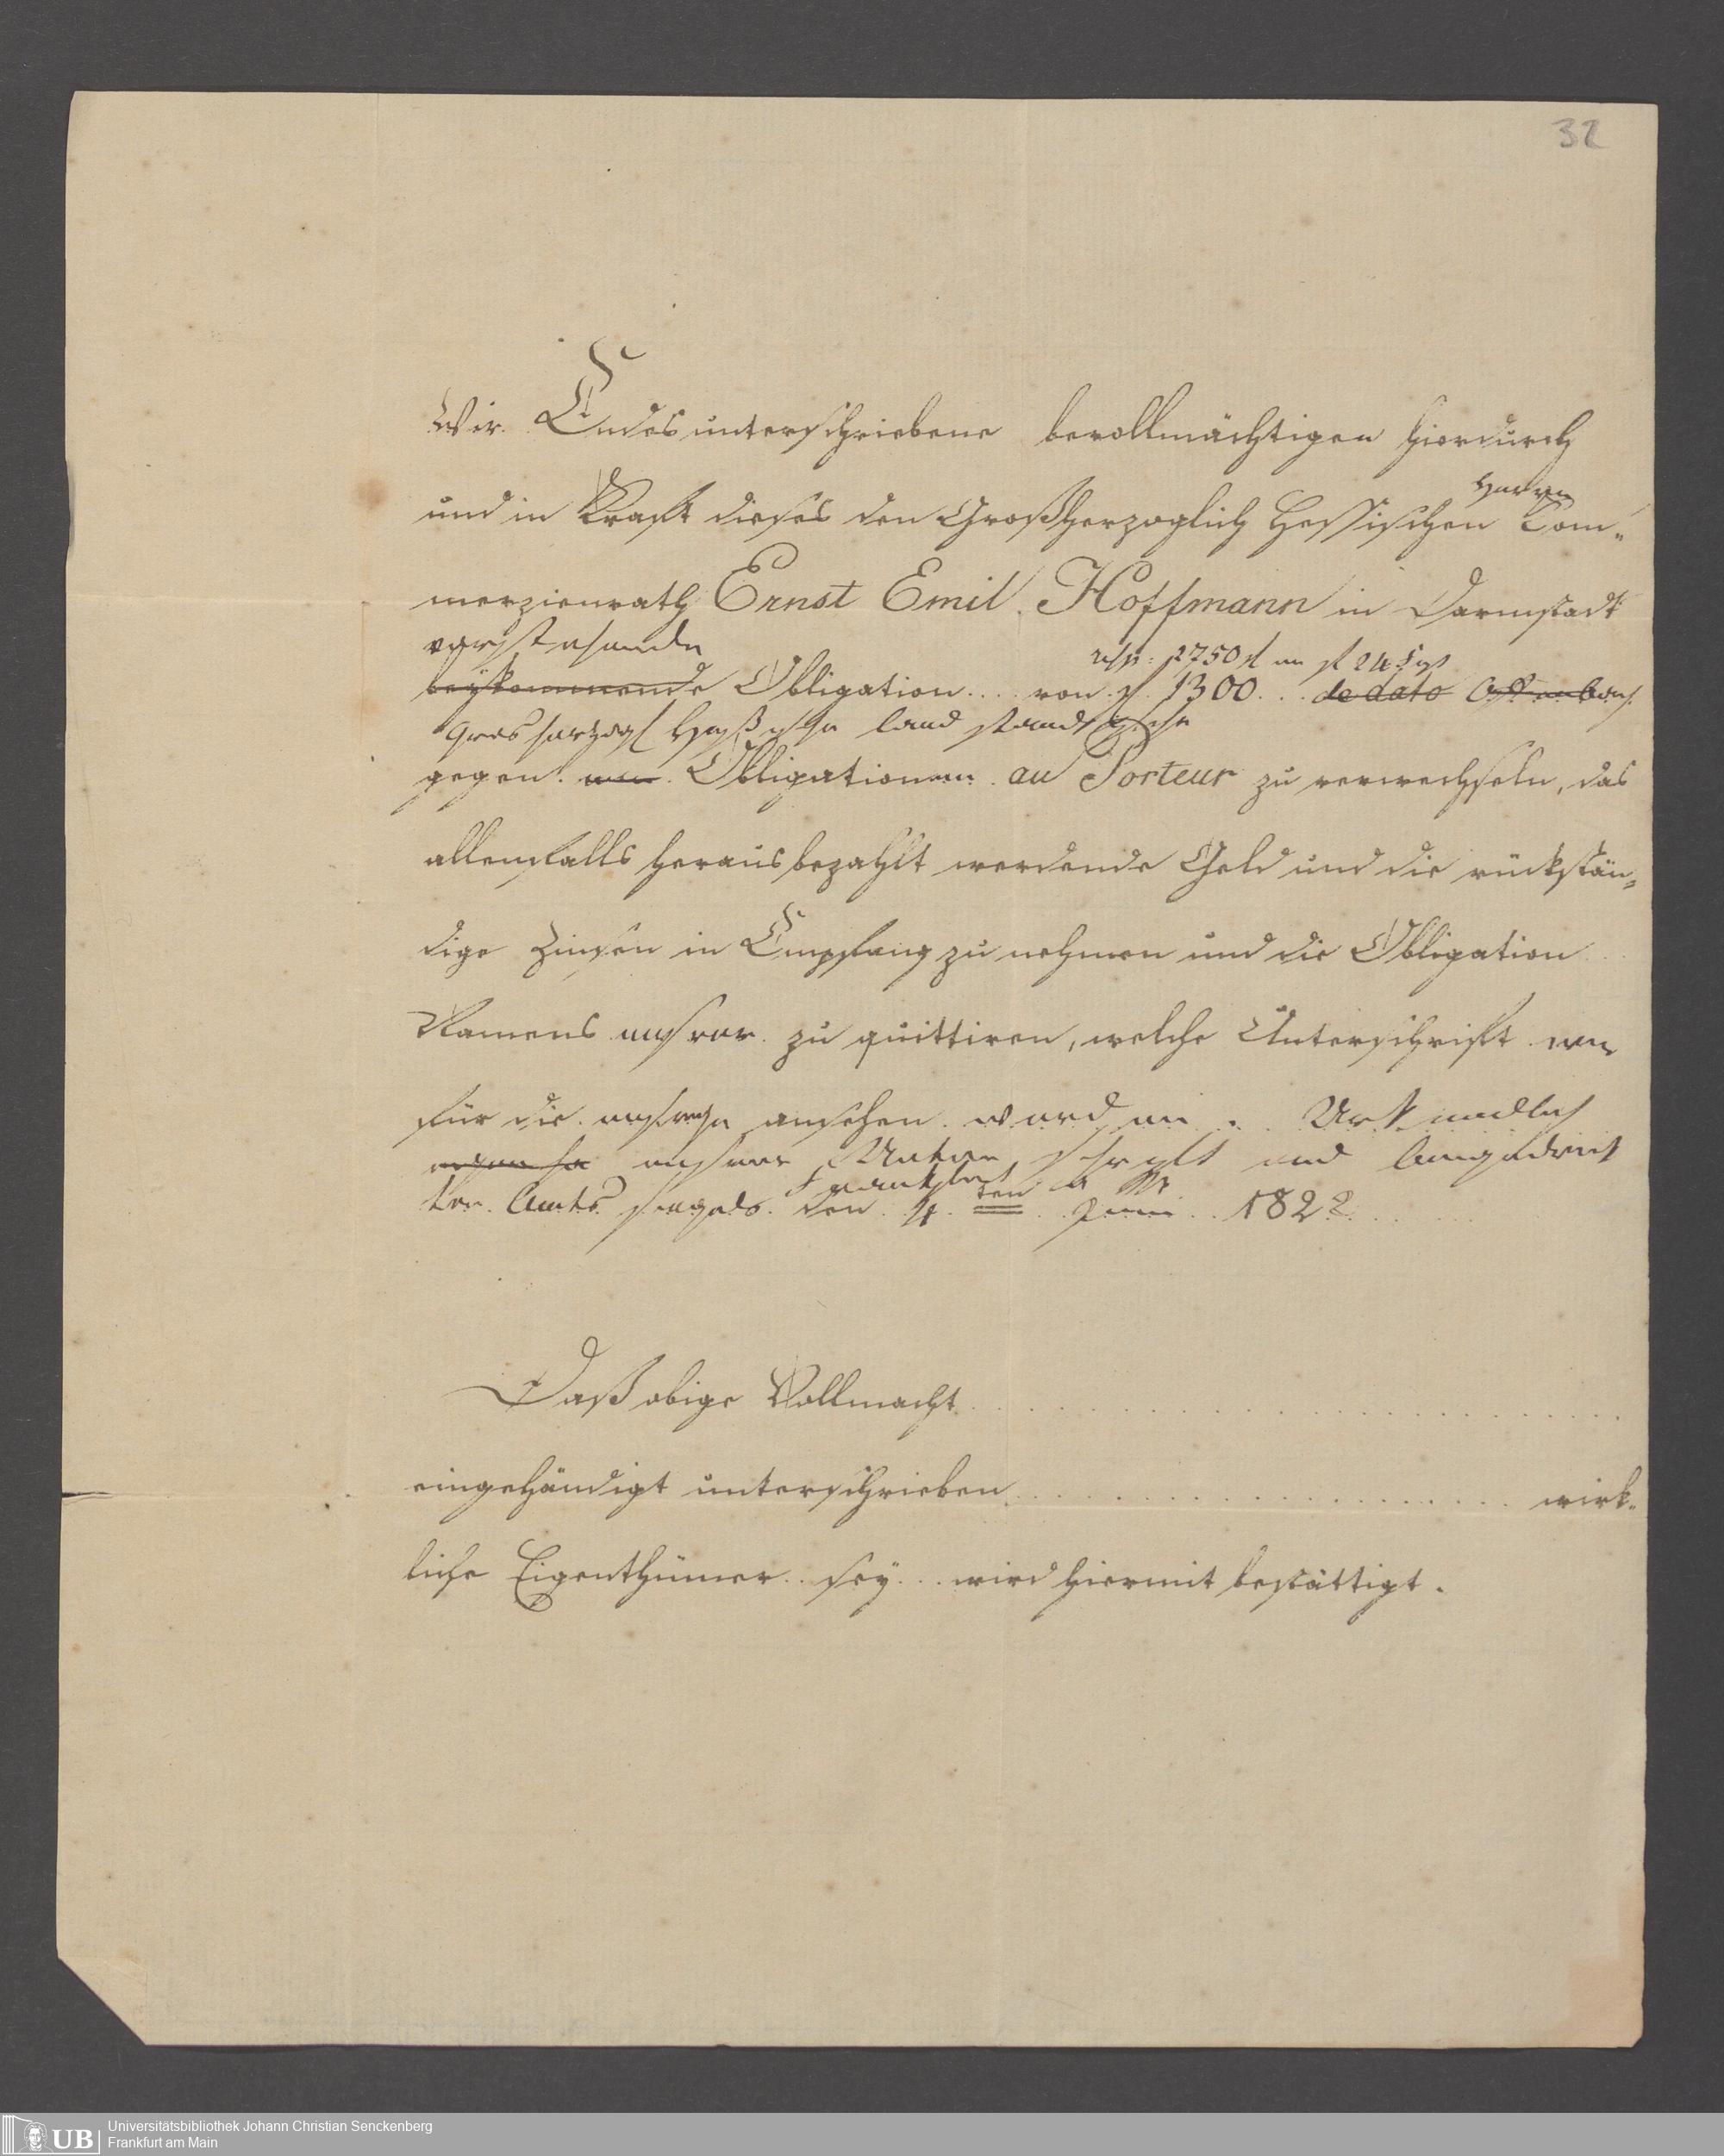 32
Wir Endesunterschriebene bevollmächtigen hierdurch
Herrn
und in Kraft dieses den Großherzoglich Hessischen Com-
merzienrath Ernst Emil Hoffmann in Darmstadt
vorstehende
resp: 2750 fl im fl 24 Fuß
beykommende Obligation .... von fl. 1300 ... de dato Offenbach
Grosherzogl Heßische landständische
gegen Obligationen au Porteur zu verwechseln, das
allenfalls herausbezahlt werdende Geld und die rückstän-
dige Zinsen in Empfang zu nehmen und die Obligation
Namens unserer zu quittiren, welche Unterschrift wir
für die unsrige ansehen werden. Urkundlich
unserer Unterschrift und beigedruck
ten Amts siegels. Frankfurt a M
den 4ten Juni 1822
Daß obige Vollmacht
eingehändigt unterschrieben wirk-
liche Eigenthümer .. sey ... wird hiermit bestättigt.
UB
Universitätsbibliothek Johann Christian Senckenberg
Frankfurt am Main